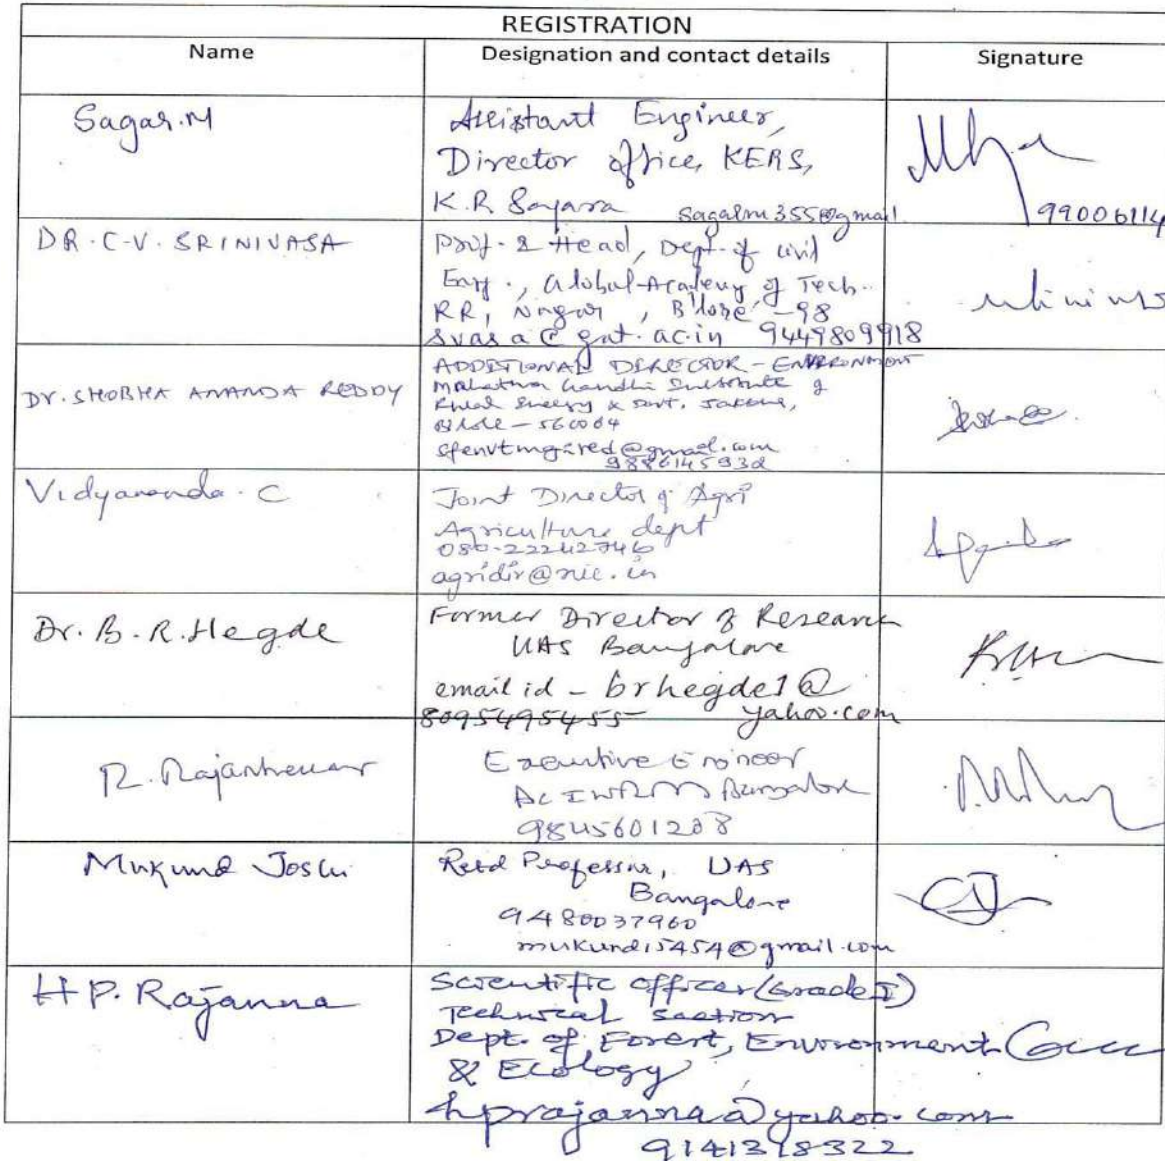 REGISTRATION
Name Designation and contact details Signature
Sagar.M
Assistant Engineer,
Director office, KERS,
K.R Sagara sagarm355@gmail
99006114
DR. C.V. SRINIVASA
Prof. & Head, Dept. of civil
Eng., Global Academy of Tech.
RR, Nagar, B'lore - 98
svasa@gat.ac.in 9449809918
Dr. SHOBHA ANANDA REDDY
ADDITIONAL DIRECTOR - ENVIRONMENT
Mahatma Gandhi Institute of
Rural Energy & Devt. Jakkur,
B'lore - 560064
9886145932
Vidyananda. C
Joint Director of Agri
Agriculture dept
080-22242746
agridir@nic.in
Dr. B.R. Hegde
Former Director of Research
UAS Bangalore
email id - brhegde1@
8095495455 yahoo.com
Executive Engineer
ACIWRM Bangalore
9845601208
Mukund Joshi
Retd Professor, UAS
Bangalore
9480037960
mukund15454@gmail.com
H P. Rajanna
Scientific officer (Grade I)
Technical section
Dept. of Forest, Environment
& Ecology
hprajanna@yahoo.com